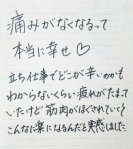 痛みがなくなるって
本当に幸せ♡
立ち仕事でどこが辛いのかも
わからないくらい疲れがたまって
いたけど筋肉がほぐされていくと
こんなに楽になるんだと実感しました